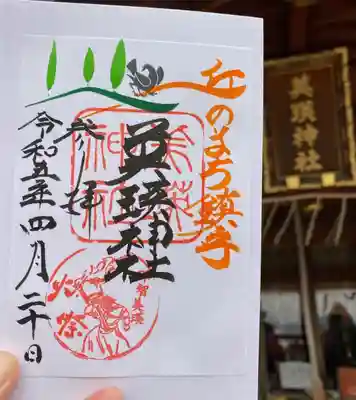 丘のまち鎮守
美瑛神社
奉拝
令和五年四月二十日
美瑛神社
火祭
美瑛神社